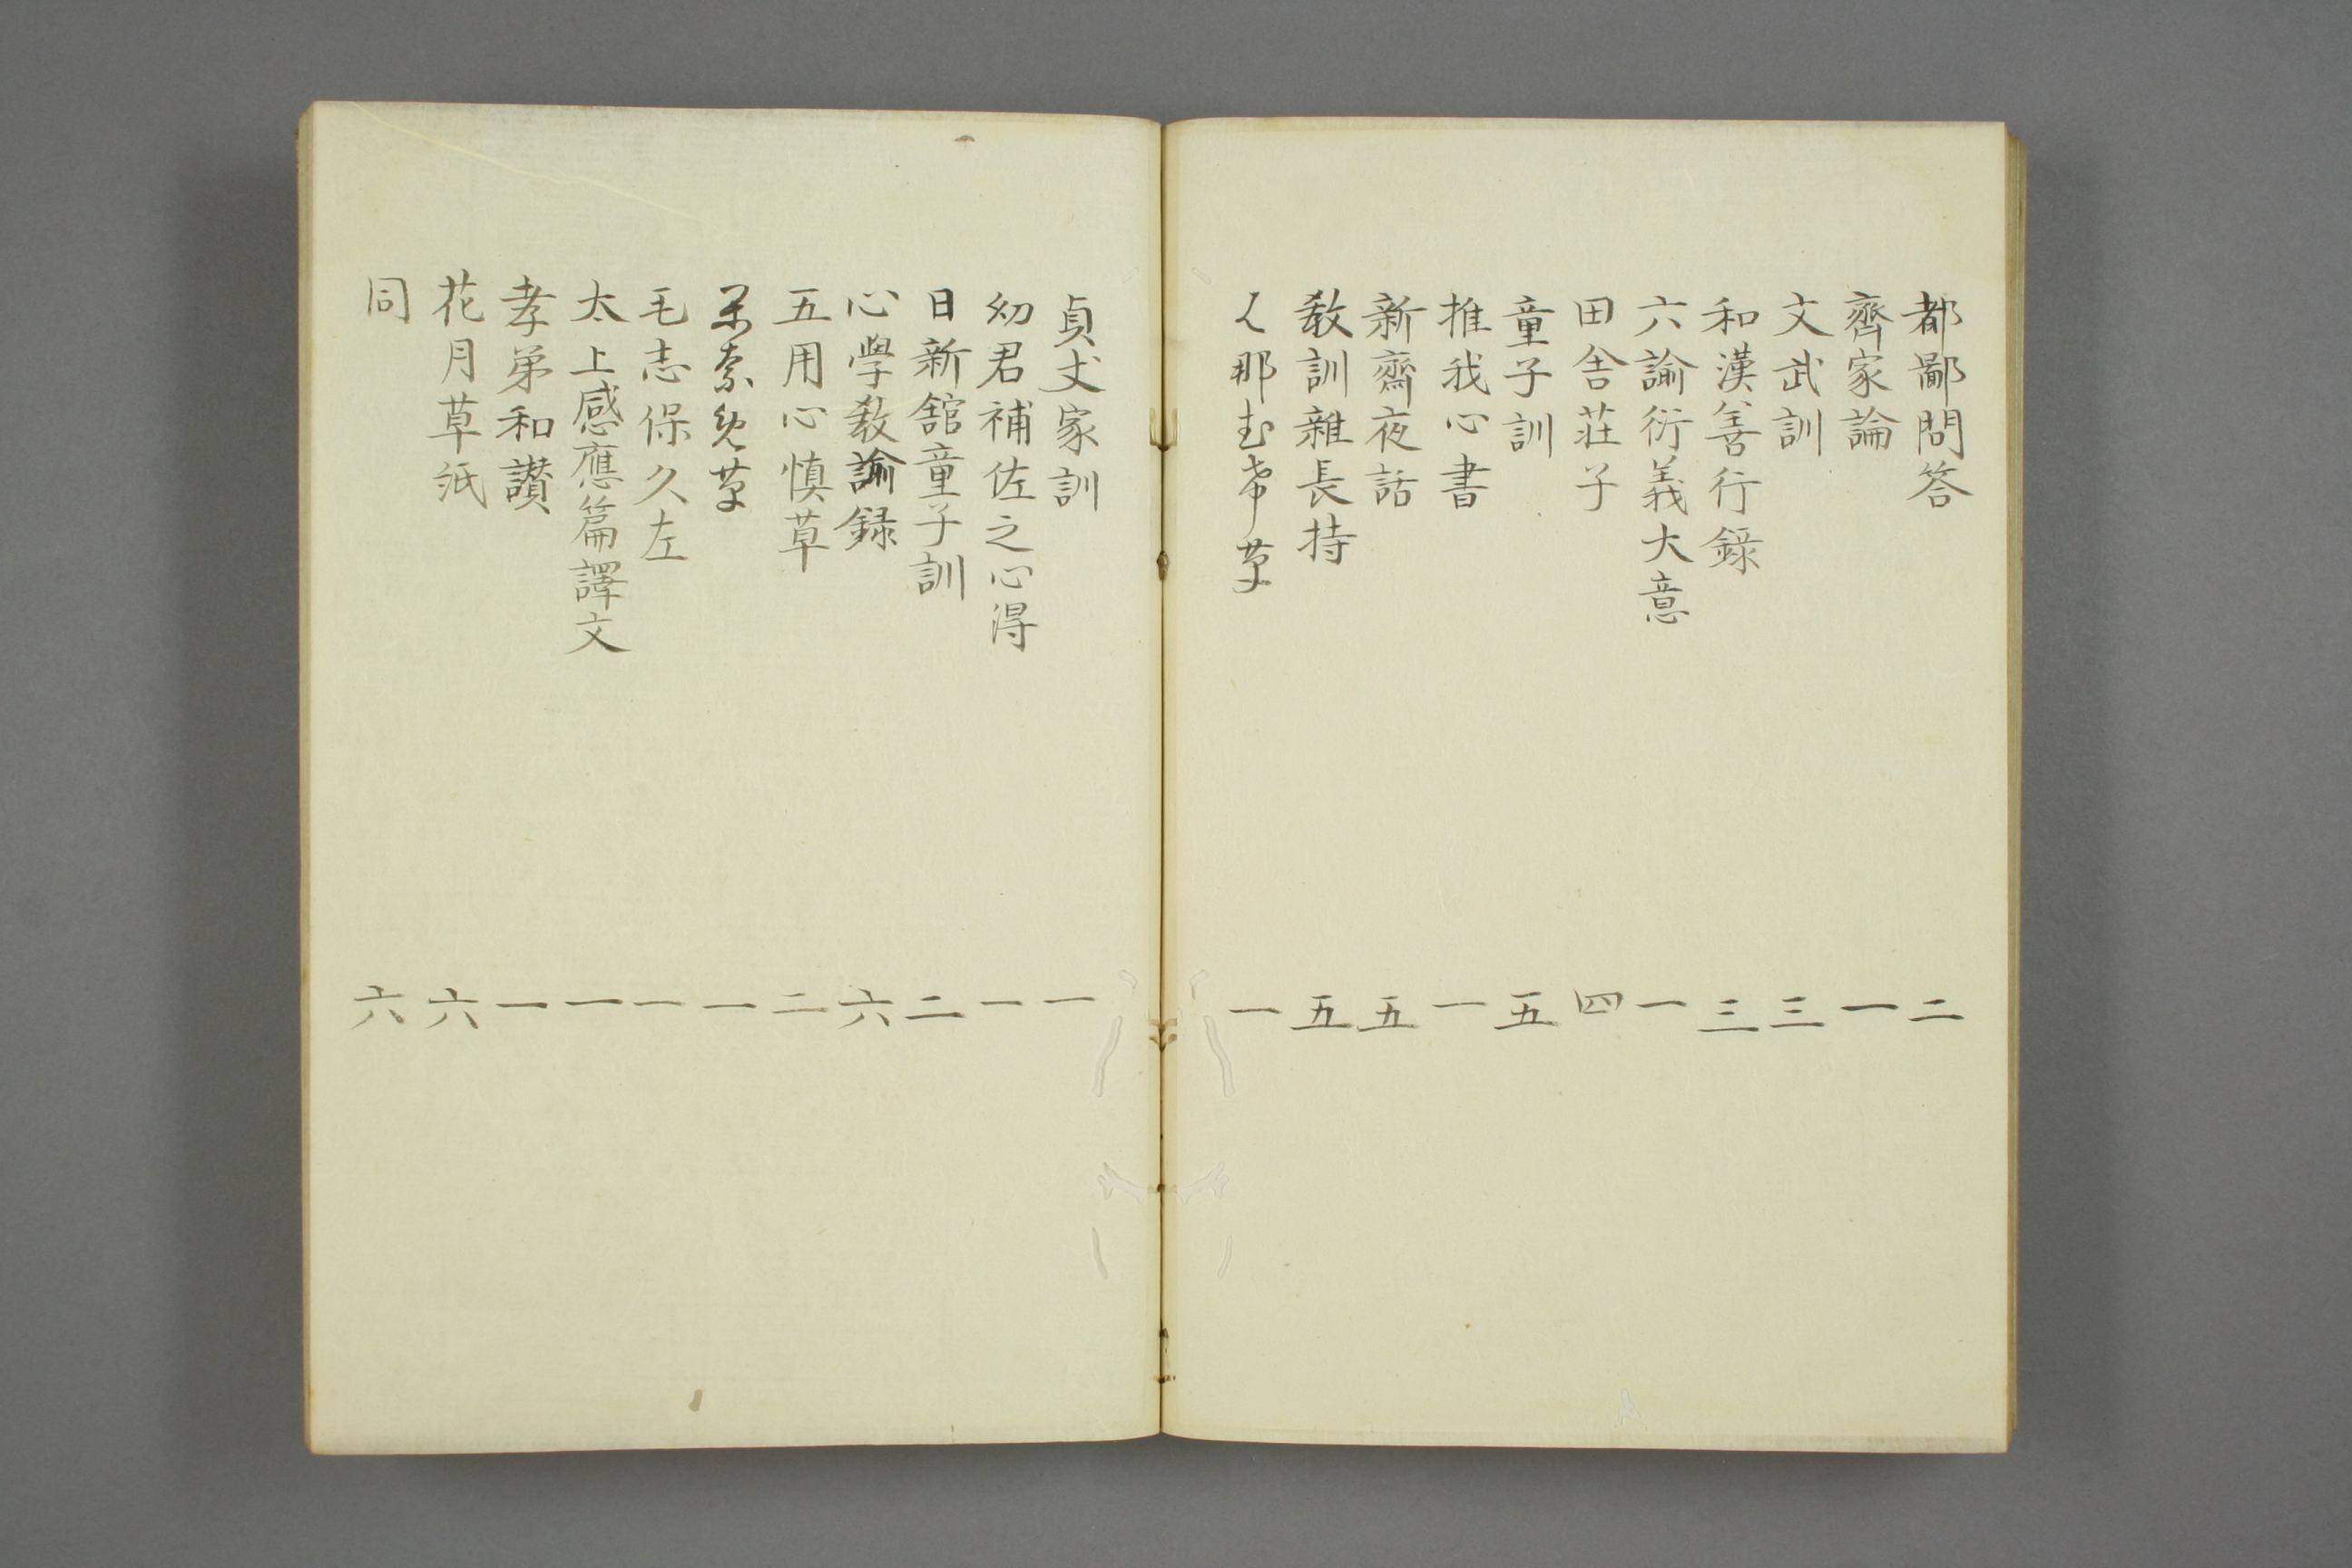 都鄙問答 二
齊家論 一
文武訓 三
和漢善行錄 三
六諭衍義大意 一
田舎荘子 四
童子訓 五
推我心書 一
新齋夜話 五
教訓雜長持 五
那 草 一
貞丈家訓 一
幼君補佐之心得 一
日新舘童子訓 二
心學教諭録 六
五用心慎草 二
草 一
毛志保久左 一
太上感應篇譯文 一
孝弟和讃 一
花月草紙 六
同 六